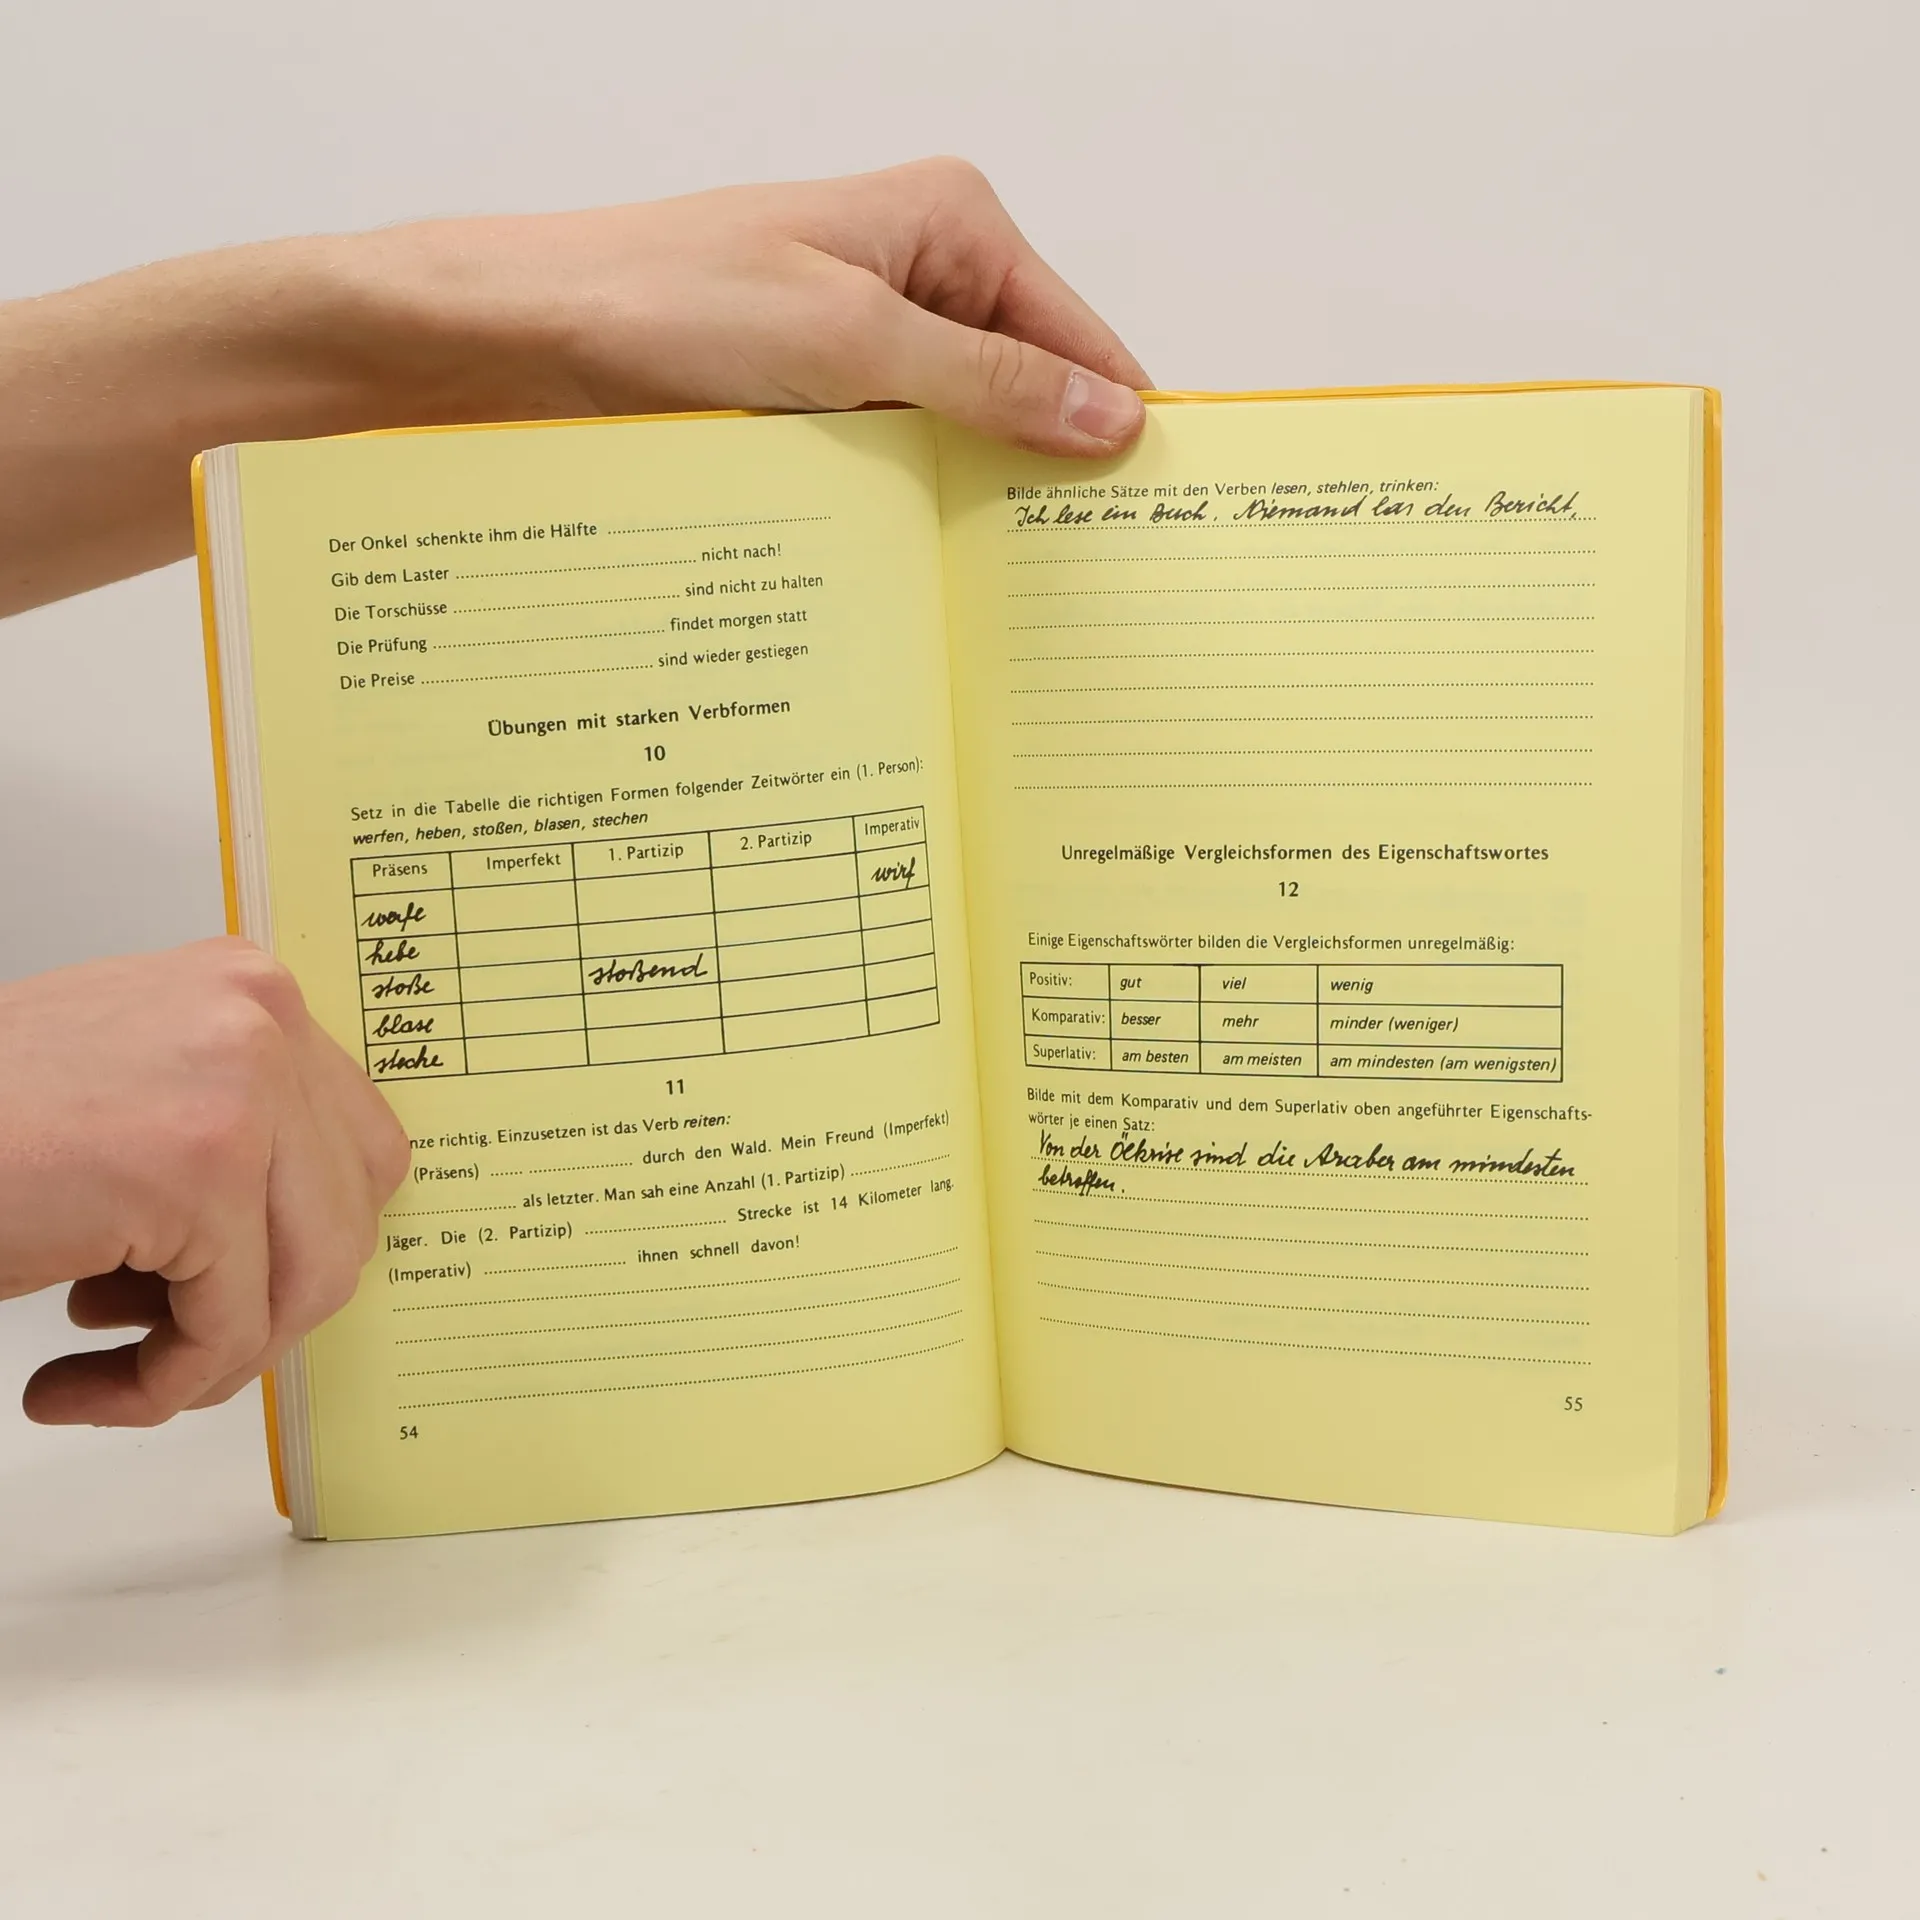 Der Onkel schenkte ihm die Hälfte ..............................
Gib dem Laster .............................. nicht nach!
Die Torschüsse .............................. sind nicht zu halten
Die Prüfung .............................. findet morgen statt
Die Preise .............................. sind wieder gestiegen
Übungen mit starken Verbformen
10
Setz in die Tabelle die richtigen Formen folgender Zeitwörter ein (1. Person):
werfen, heben, stoßen, blasen, stechen
Präsens Imperfekt 1. Partizip 2. Partizip Imperativ
werfe wirf
hebe
stoße stoßend
blase
steche
11
nze richtig. Einzusetzen ist das Verb reiten:
(Präsens) ...... .................... durch den Wald. Mein Freund (Imperfekt)
.............................. als letzter. Man sah eine Anzahl (1. Partizip) ....................
Jäger. Die (2. Partizip) .............................. Strecke ist 14 Kilometer lang.
(Imperativ) .............................. ihnen schnell davon!
54
Bilde ähnliche Sätze mit den Verben lesen, stehlen, trinken:
Ich lese ein Buch. Niemand las den Bericht.
Unregelmäßige Vergleichsformen des Eigenschaftswortes
12
Einige Eigenschaftswörter bilden die Vergleichsformen unregelmäßig:
Positiv: gut viel wenig
Komparativ: besser mehr minder (weniger)
Superlativ: am besten am meisten am mindesten (am wenigsten)
Bilde mit dem Komparativ und dem Superlativ oben angeführter Eigenschafts-
wörter je einen Satz:
Von der Ölkrise sind die Araber am mindesten
betroffen.
55